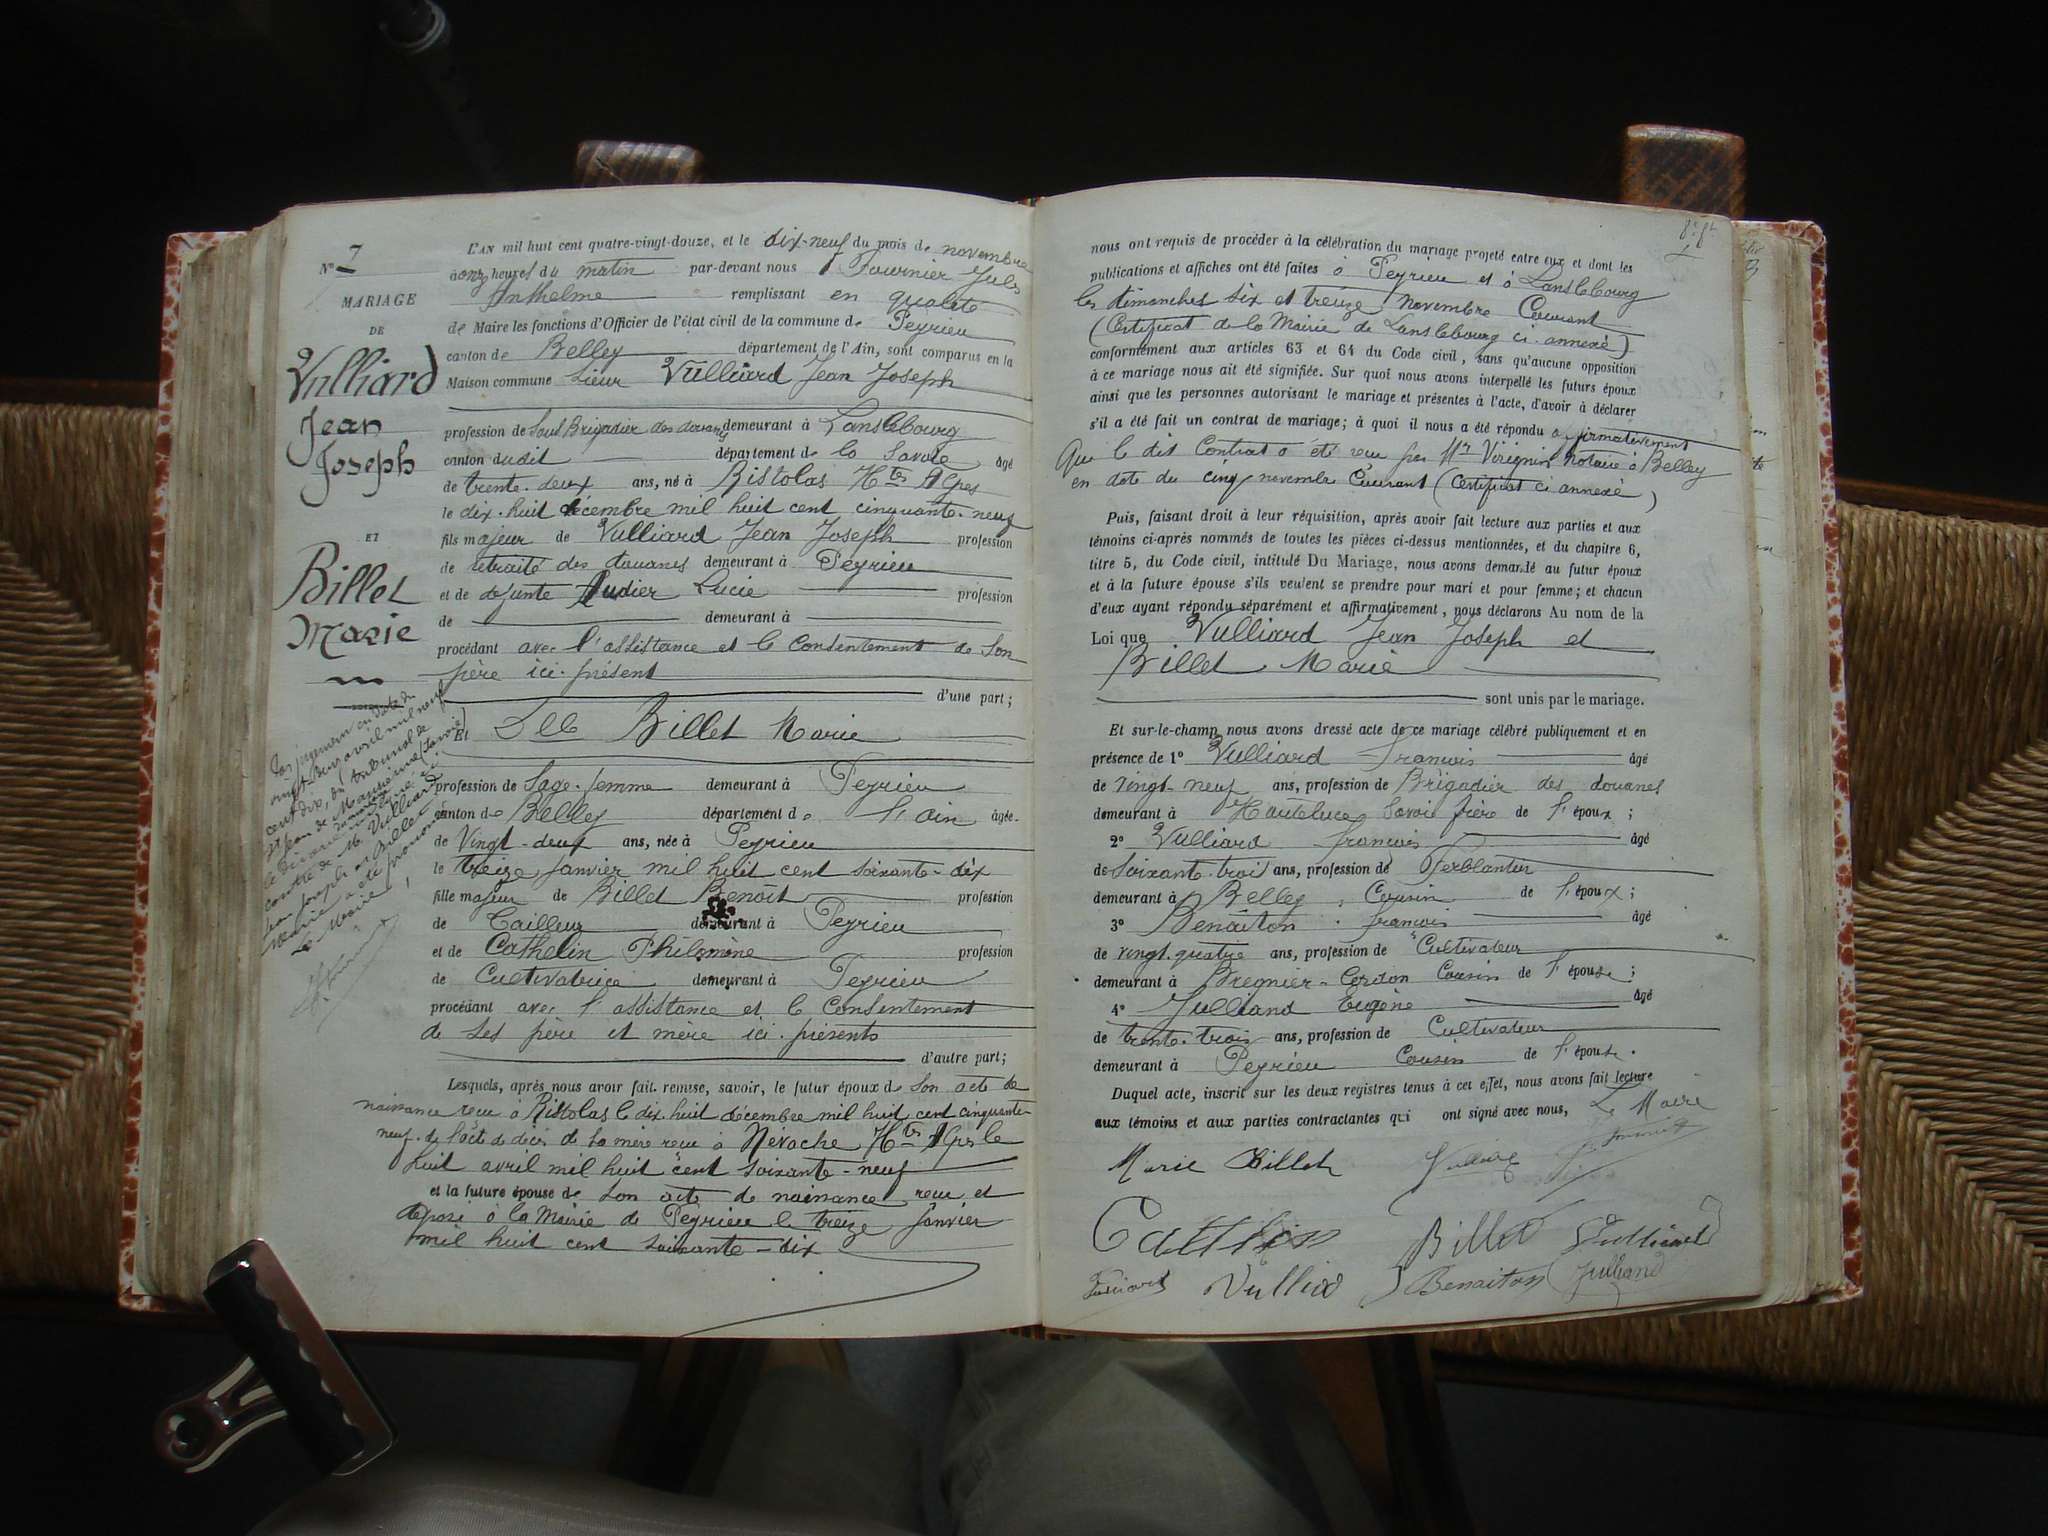 N° 7
MARIAGE
DE
Vulliard
Jean
Joseph
ET
Billet
Marie
Par jugement en date du
vingt deux avril mil neuf
cent dix, du Tribunal de
St Jean de Maurienne (Savoie)
le divorce
contre de M. Vulliard
Jean Joseph et Billet
Marie a été prononcé
Le Maire
L'AN mil huit cent quatre-vingt-douze, et le dix-neuf du mois de novembre
à onze heures du matin par-devant nous Fournier Jules
Anthelme remplissant en qualité
de Maire les fonctions d'Officier de l'état civil de la commune de Peyrieu
canton de Belley département de l'Ain, sont comparus en la
Maison commune Sieur Vulliard Jean Joseph
profession de Sous Brigadier des douanes demeurant à Lanslebourg
canton dudit département de la Savoie âgé
de trente-deux ans, né à Ristolas Htes Alpes
le dix-huit décembre mil huit cent cinquante-neuf
fils majeur de Vulliard Jean Joseph profession
de retraité des douanes demeurant à Peyrieu
et de défunte Audier Lucie profession
de demeurant à
procédant avec l'assistance et le consentement de son
père ici présent
d'une part;
Et Dlle Billet Marie
profession de Sage-femme demeurant à Peyrieu
canton de Belley département de l'ain âgée
de Vingt-deux ans, née à Peyrieu
le treize janvier mil huit cent soixante-dix
fille majeur de Billet Benoît profession
de Tailleur demeurant à Peyrieu
et de Cathelin Philomène profession
de Cultivatrice demeurant à Peyrieu
procédant avec l'assistance et le consentement
de ses père et mère ici présents
d'autre part;
Lesquels, après nous avoir fait remise, savoir, le futur époux de son acte de
naissance reçu à Ristolas le dix-huit décembre mil huit cent cinquante-
neuf. de l'acte de décès de sa mère reçu à Névache Htes Alpes le
huit avril mil huit cent soixante-neuf
et la future épouse de son acte de naissance reçu et
déposé à la Mairie de Peyrieu le treize janvier
mil huit cent soixante-dix
nous ont requis de procéder à la célébration du mariage projeté entre eux et dont les
publications et affiches ont été faites à Peyrieu et à Lanslebourg
les dimanches six et treize novembre Courant
(Certificat de la Mairie de Lanslebourg ci-annexé)
conformément aux articles 63 et 64 du Code civil, sans qu'aucune opposition
à ce mariage nous ait été signifiée. Sur quoi nous avons interpellé les futurs époux
ainsi que les personnes autorisant le mariage et présentes à l'acte, d'avoir à déclarer
s'il a été fait un contrat de mariage; à quoi il nous a été répondu affirmativement
Que le dit Contrat a été reçu par Mr Virignin Notaire à Belley
en date du cinq novembre Courant (Certificat ci annexé)
Puis, faisant droit à leur réquisition, après avoir fait lecture aux parties et aux
témoins ci-après nommés de toutes les pièces ci-dessus mentionnées, et du chapitre 6,
titre 5, du Code civil, intitulé Du Mariage, nous avons demandé au futur époux
et à la future épouse s'ils veulent se prendre pour mari et pour femme; et chacun
d'eux ayant répondu séparément et affirmativement, nous déclarons Au nom de la
Loi que Vulliard Jean Joseph et
Billet Marie
sont unis par le mariage.
Et sur-le-champ nous avons dressé acte de ce mariage célébré publiquement et en
présence de 1° Vulliard François âgé
de vingt-neuf ans, profession de Brigadier des douanes
demeurant à Hauteluce Savoie frère de l'époux;
2° Vulliard françois âgé
de soixante-trois ans, profession de Ferblantier
demeurant à Belley, Cousin de l'époux;
3° Benaiton françois âgé
de vingt-quatre ans, profession de Cultivateur
demeurant à Bregnier-Cordon Cousin de l'épouse;
4° Julliand Eugène âgé
de trente-trois ans, profession de Cultivateur
demeurant à Peyrieu Cousin de l'épouse.
Duquel acte, inscrit sur les deux registres tenus à cet effet, nous avons fait lecture
aux témoins et aux parties contractantes qui ont signé avec nous, Le Maire
Marie Billet Vulliard
Cathlin Billet Vulliard
Vulliard Benaiton Julliand